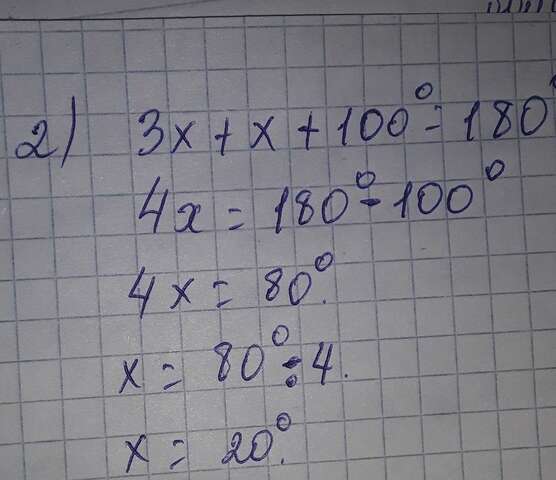 2) 3x + x + 100° = 180°
4x = 180° - 100°
4x = 80°.
x = 80° : 4.
x = 20°.